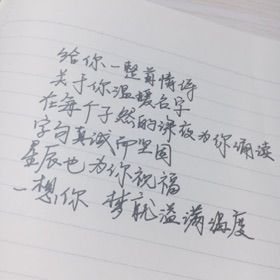 给你一整首情诗
关于你温暖名字
在每个孑然的深夜为你诵读
字句真诚而坚固
星辰也为你祝福
一想你 梦就溢满温度